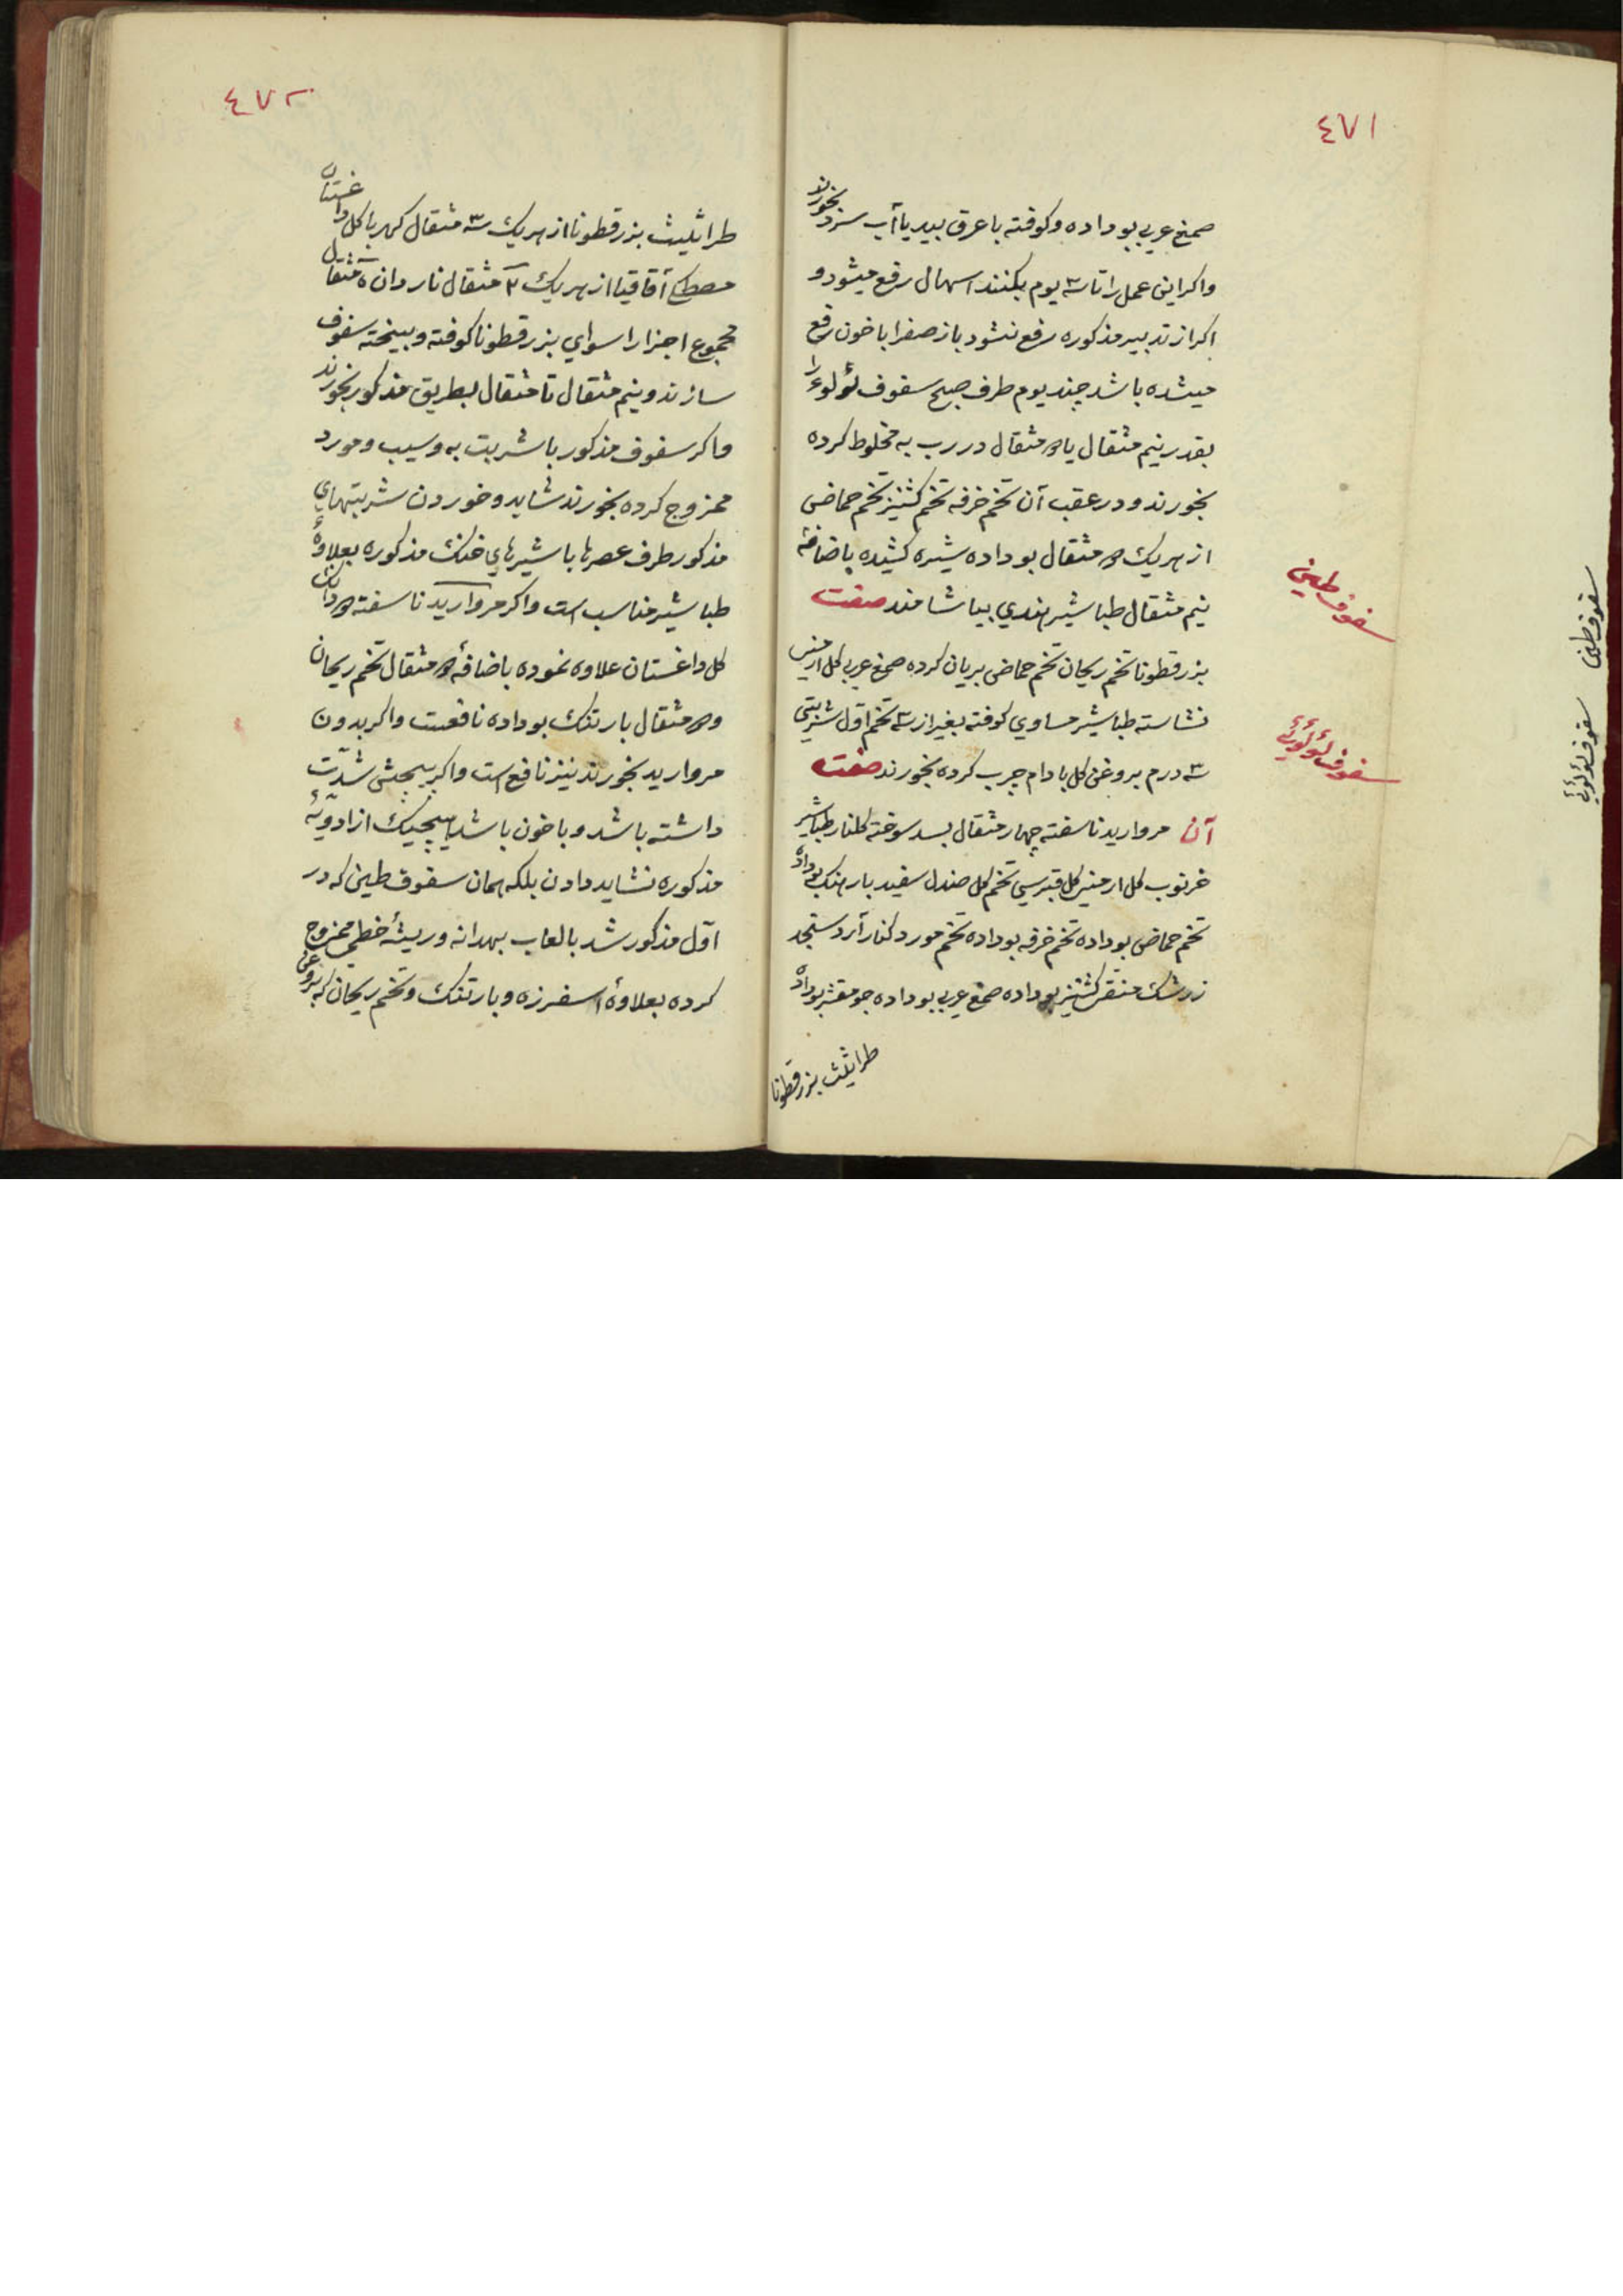 ٤٧١
صمغ عربي بو داده و كوفته با عرق بيد يا آب سرد بخورند
واكر اين عمل را تا سه يوم بكنند اسهال رفع ميشود و
اكر از تدبير مذكوره رفع نشود باز صفرا با خون رفع
ميشده باشد چند يوم طرف صبح سفوف لؤلوء را
بقدر نيم مثقال يا مثقال در رب به مخلوط كرده
بخورند و در عقب آن تخم خرفه تخم كشنيز تخم حماض
از هريك مثقال بو داده شيره كشيده باضافهٔ
نيم مثقال طباشير هندي بياشامند صفت
سفوف طيني
بزرقطونا تخم ريحان تخم حماض بريان كرده صمغ عربي كل ارمني
نشاسته طباشير مساوي كوفته بغير از سه تخم اول شربتي
سه درم بروغن كل بادام چرب كرده بخورند صفت
سفوف لؤلؤيي
آن مرواريد ناسفته چهار مثقال بسد سوخته كلنار طباشير
خرنوب كل ارمني كل قبرسي تخم كل صندل سفيد بارهنك بوداده
تخم حماض بو داده تخم خرفه بو داده تخم مورد كنار آرد سنجد
زرشك منقى كشنيز بو داده صمغ عربي بو داده جو مقشر بوداده
طراثيث بزرقطونا
سفوف طيني
سفوف لؤلؤيي
٤٧٢
طراثيث بزرقطونا از هريك سه مثقال كهربا كل داغستان
مصطكي آقاقيا از هريك ٢ مثقال ناردان ٥ مثقال
مجموع اجزا را سواي بزرقطونا كوفته و بيخته سفوف
سازند و نيم مثقال تا مثقال بطريق مذكور بخورند
و اكر سفوف مذكور با شربت به و سيب و مورد
ممزوج كرده بخورند شايد و خوردن شربتهاي
مذكور طرف عصرها با شيرهاي خنك مذكوره بعلاوهٔ
طباشير مناسب است و اكر مرواريد ناسفته دانك
كل داغستان علاوه نموده باضافهٔ مثقال تخم ريحان
و مثقال بارتنك بو داده نافعست و اكر بدون
مرواريد بخورند نيز نافع است و اكر پيچش شدّت
داشته باشد و با خون باشد هيچيك از ادويّهٔ
مذكوره نشايد دادن بلكه همان سفوف طيني كه در
اوّل مذكور شد با لعاب بهدانه و ريشهٔ خطمي ممزوج
كرده بعلاوهٔ اسفرزه و بارتنك و تخم ريحان كه بروغن